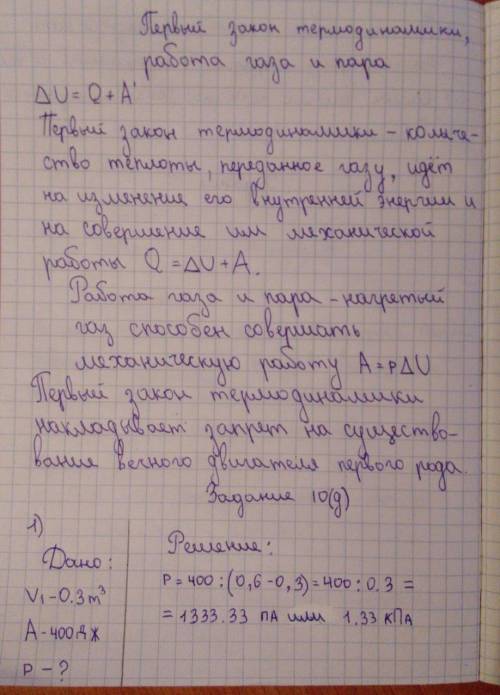 Первый закон термодинамики,
работа газа и пара
ΔU = Q + A'
Первый закон термодинамики – количе-
ство теплоты, переданное газу, идёт
на изменение его внутренней энергии и
на совершение им механической
работы Q = ΔU + A.
Работа газа и пара – нагретый
газ способен совершать
механическую работу A = pΔU
Первый закон термодинамики
накладывает запрет на существо-
вание вечного двигателя первого рода.
Задание 10(д)
1)
Дано:
V₁ - 0.3 m³
A - 400 Дж
P - ?
Решение:
P = 400 : (0,6 - 0,3) = 400 : 0.3 =
= 1333.33 ПА или 1.33 кПА